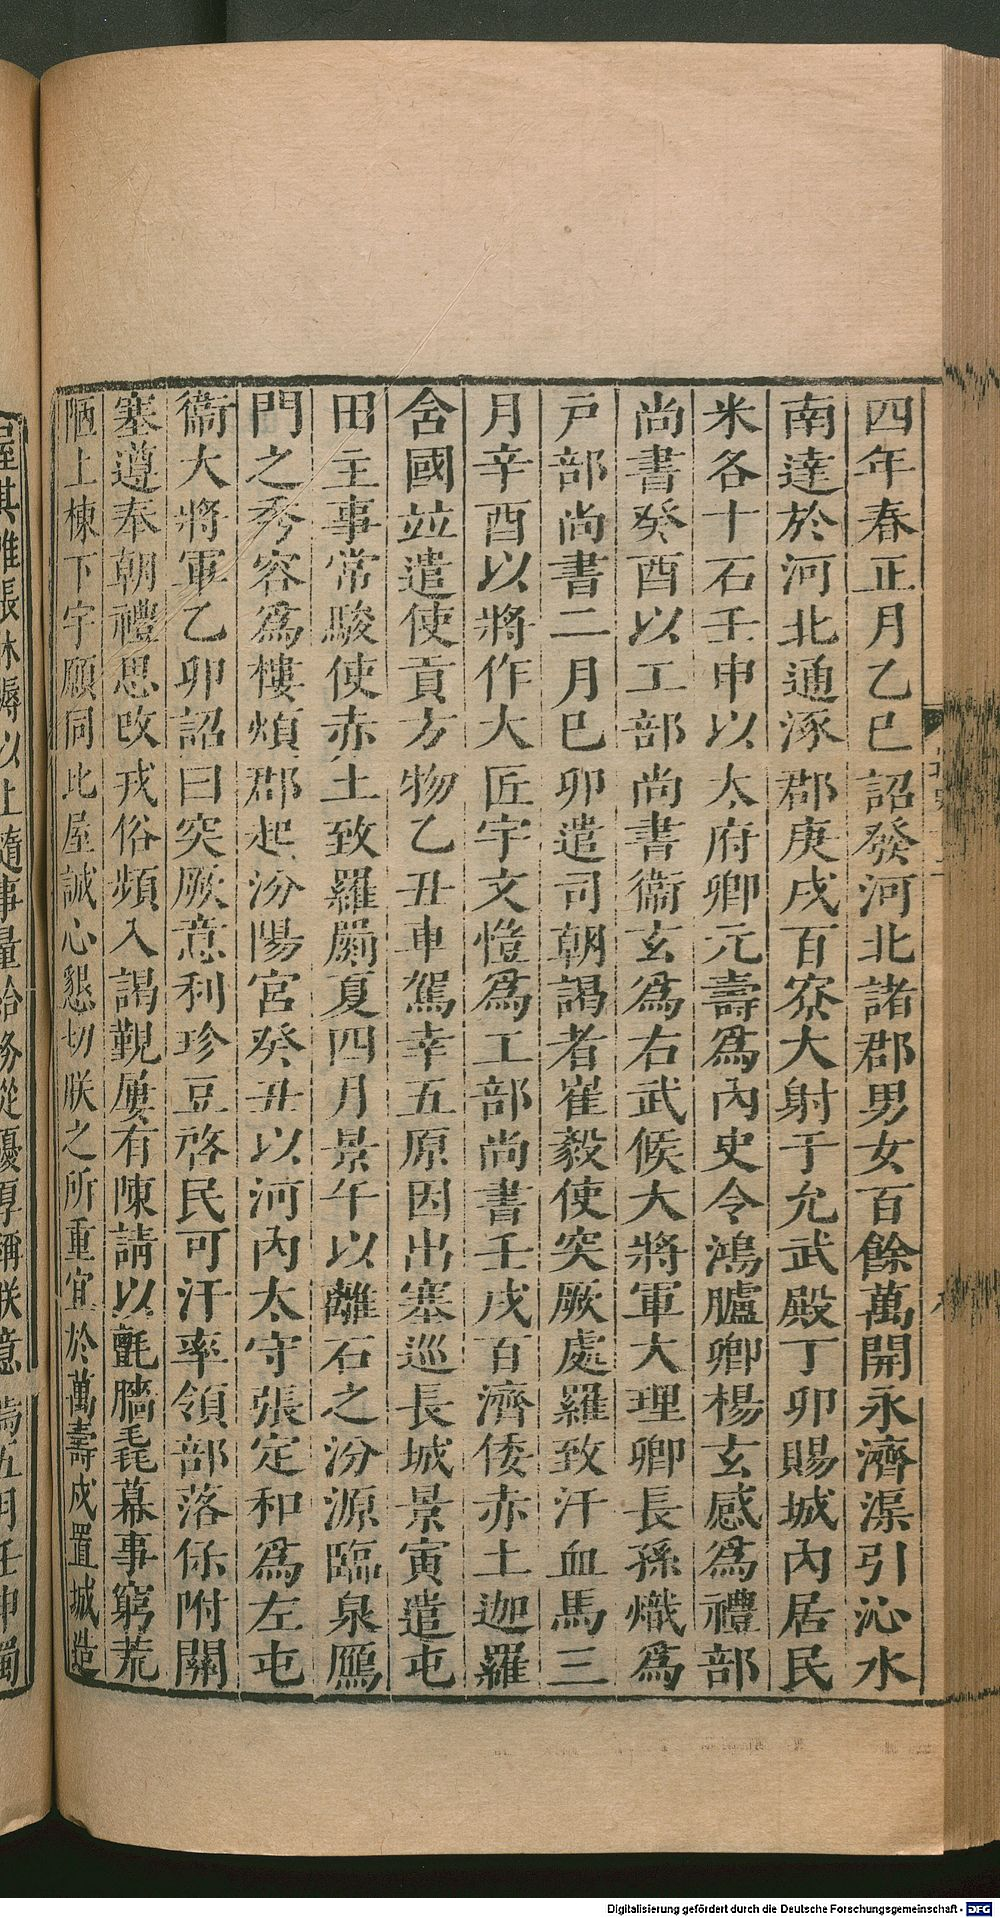 四年春正月乙巳詔發河北諸郡男女百餘萬開永濟渠引沁水
南達於河北通涿郡庚戌百寮大射于允武殿丁卯賜城內居民
米各十石壬申以太府卿元壽爲內史令鴻臚卿楊玄感爲禮部
尚書癸酉以工部尚書衞玄爲右武候大將軍大理卿長孫熾爲
戸部尚書二月巳卯遣司朝謁者崔毅使突厥處羅致汗血馬三
月辛酉以將作大匠宇文愷爲工部尚書壬戌百濟倭赤土迦羅
舍國竝遣使貢方物乙丑車駕幸五原因出塞巡長城景寅遣屯
田主事常駿使赤土致羅罽夏四月景午以離石之汾源臨泉鴈
門之秀容爲樓煩郡起汾陽宮癸丑以河內太守張定和爲左屯
衞大將軍乙卯詔曰突厥意利珍豆啓民可汗率領部落保附關
塞遵奉朝禮思改戎俗頻入謁覲屢有陳請以氈牆毳幕事窮荒
陋上棟下宇願同比屋誠心懇切朕之所重宜於萬壽戍置城造
屋其帷帳牀褥以上隨事量給務從優厚稱朕意焉五月壬申蜀
Digitalisierung gefördert durch die Deutsche Forschungsgemeinschaft - DFG